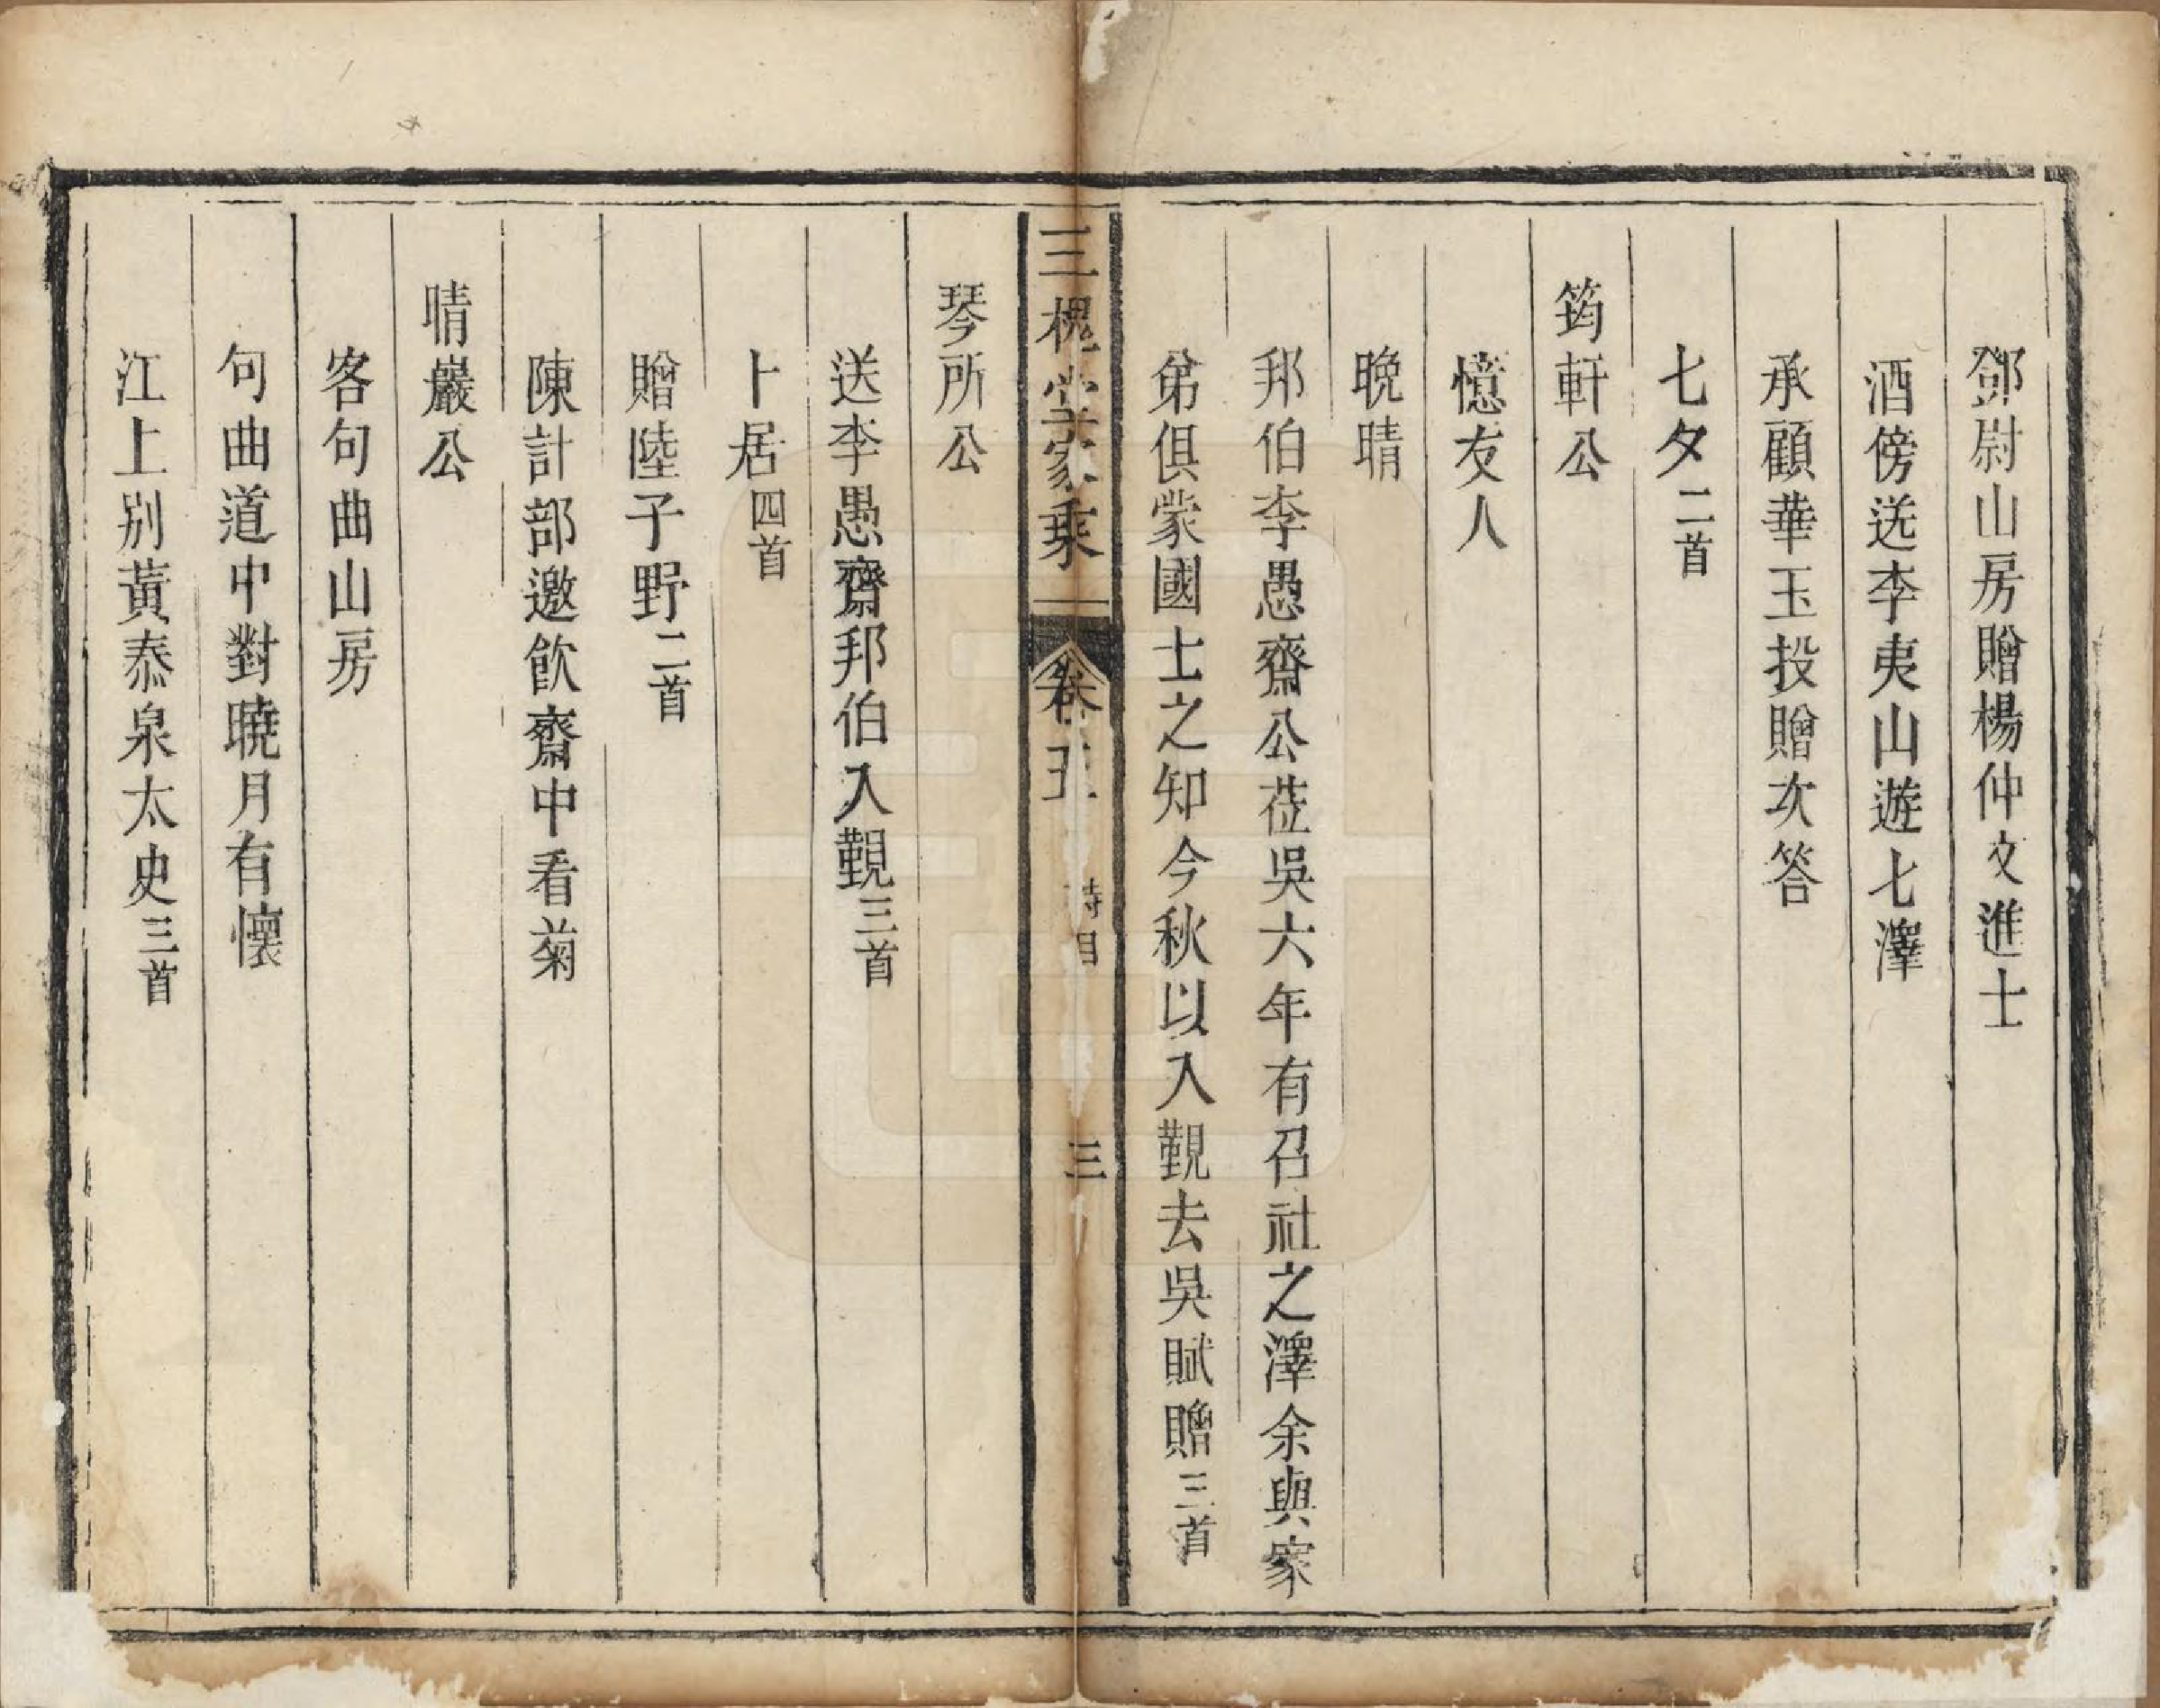 鄧尉山房贈楊仲文進士
酒傍送李夷山遊七澤
承顧華玉投贈次答
七夕二首
筠軒公
憶友人
晚晴
邦伯李愚齋公莅吳六年有召社之澤余與家
弟俱蒙國士之知今秋以入覲去吳賦贈三首
三槐堂家乘 卷五 詩目 三
琴所公
送李愚齋邦伯入覲三首
卜居四首
贈陸子野二首
陳計部邀飲齋中看菊
晴巖公
客句曲山房
句曲道中對曉月有懷
江上別黃泰泉太史三首